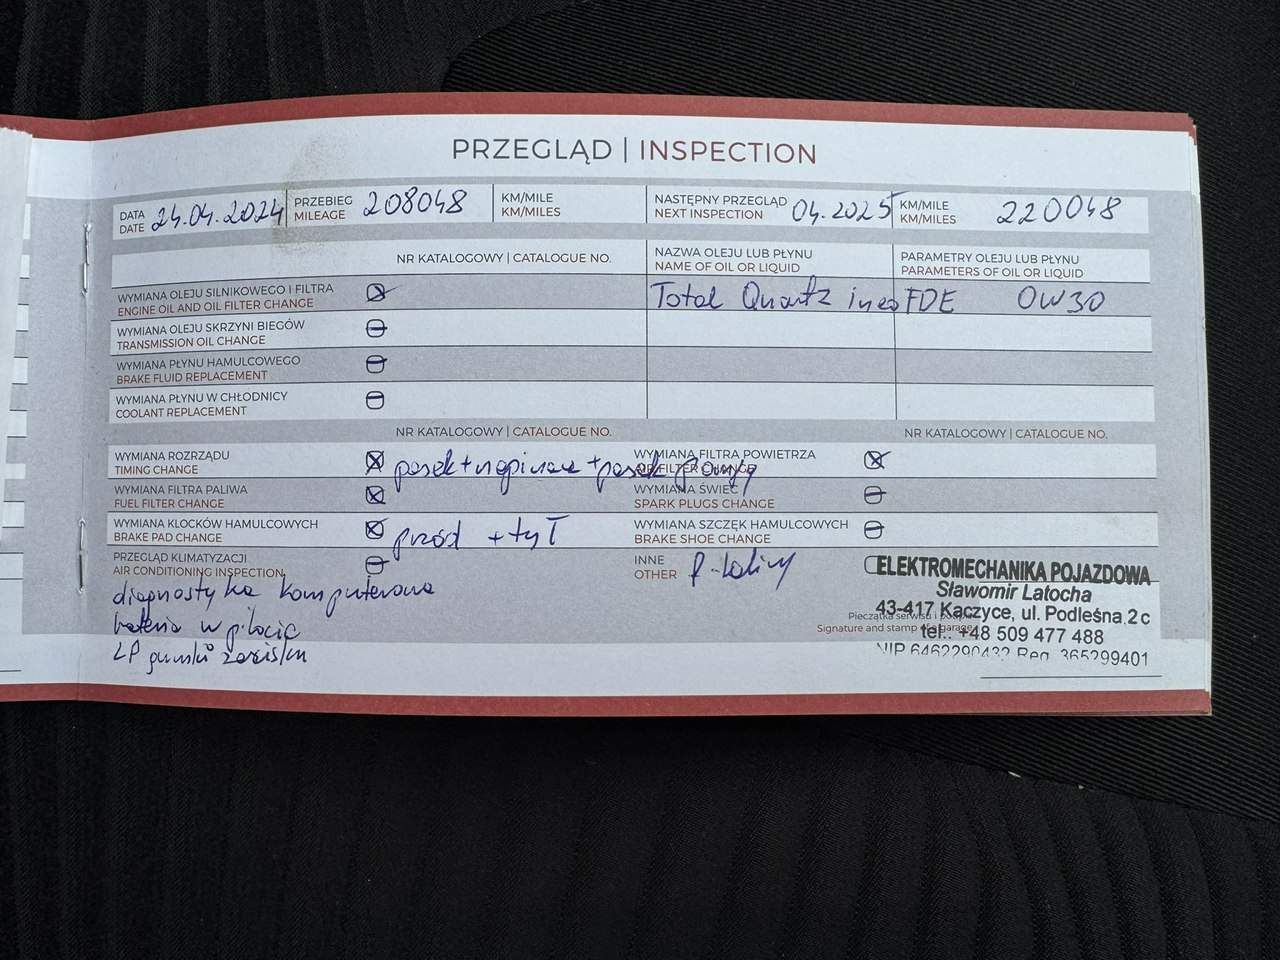 PRZEGLĄD | INSPECTION
DATA 24.04.2024 PRZEBIEG 208048 KM/MILE NASTĘPNY PRZEGLĄD 04.2025 KM/MILE 220048
DATE MILEAGE KM/MILES NEXT INSPECTION KM/MILES
NR KATALOGOWY | CATALOGUE NO. NAZWA OLEJU LUB PŁYNU PARAMETRY OLEJU LUB PŁYNU
NAME OF OIL OR LIQUID PARAMETERS OF OIL OR LIQUID
WYMIANA OLEJU SILNIKOWEGO I FILTRA Total Quartz ineo FDE 0W30
ENGINE OIL AND OIL FILTER CHANGE
WYMIANA OLEJU SKRZYNI BIEGÓW
TRANSMISSION OIL CHANGE
WYMIANA PŁYNU HAMULCOWEGO
BRAKE FLUID REPLACEMENT
WYMIANA PŁYNU W CHŁODNICY
COOLANT REPLACEMENT
NR KATALOGOWY | CATALOGUE NO. NR KATALOGOWY | CATALOGUE NO.
WYMIANA ROZRZĄDU pasek+napinacz+pasek pompy WYMIANA FILTRA POWIETRZA
TIMING CHANGE AIR FILTER CHANGE
WYMIANA FILTRA PALIWA WYMIANA ŚWIEC
FUEL FILTER CHANGE SPARK PLUGS CHANGE
WYMIANA KLOCKÓW HAMULCOWYCH przód + tył WYMIANA SZCZĘK HAMULCOWYCH
BRAKE PAD CHANGE BRAKE SHOE CHANGE
PRZEGLĄD KLIMATYZACJI INNE
AIR CONDITIONING INSPECTION OTHER
diagnostyka komputerowa
bateria w pilocie
ELEKTROMECHANIKA POJAZDOWA
Sławomir Latocha
43-417 Kaczyce, ul. Podleśna 2c
Pieczątka serwisu i podpis
Signature and stamp of a garage
tel.: +48 509 477 488
NIP 6462290432 Reg. 365299401